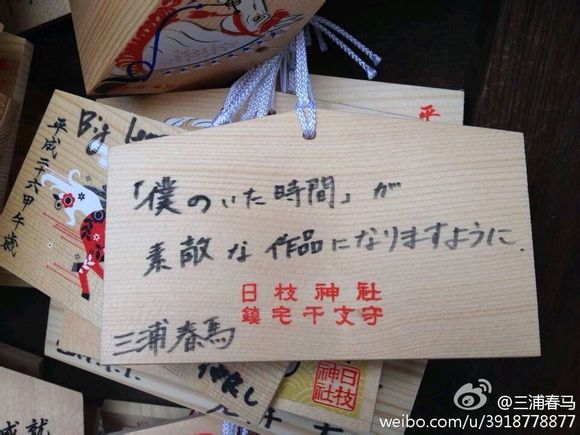 「僕のいた時間」が
素敵な作品になりますように.
日枝神社
鎮宅干支守
三浦春馬
平成二十六甲午歳
Big
平
日枝
神社
@三浦春马
weibo.com/u/3918778877